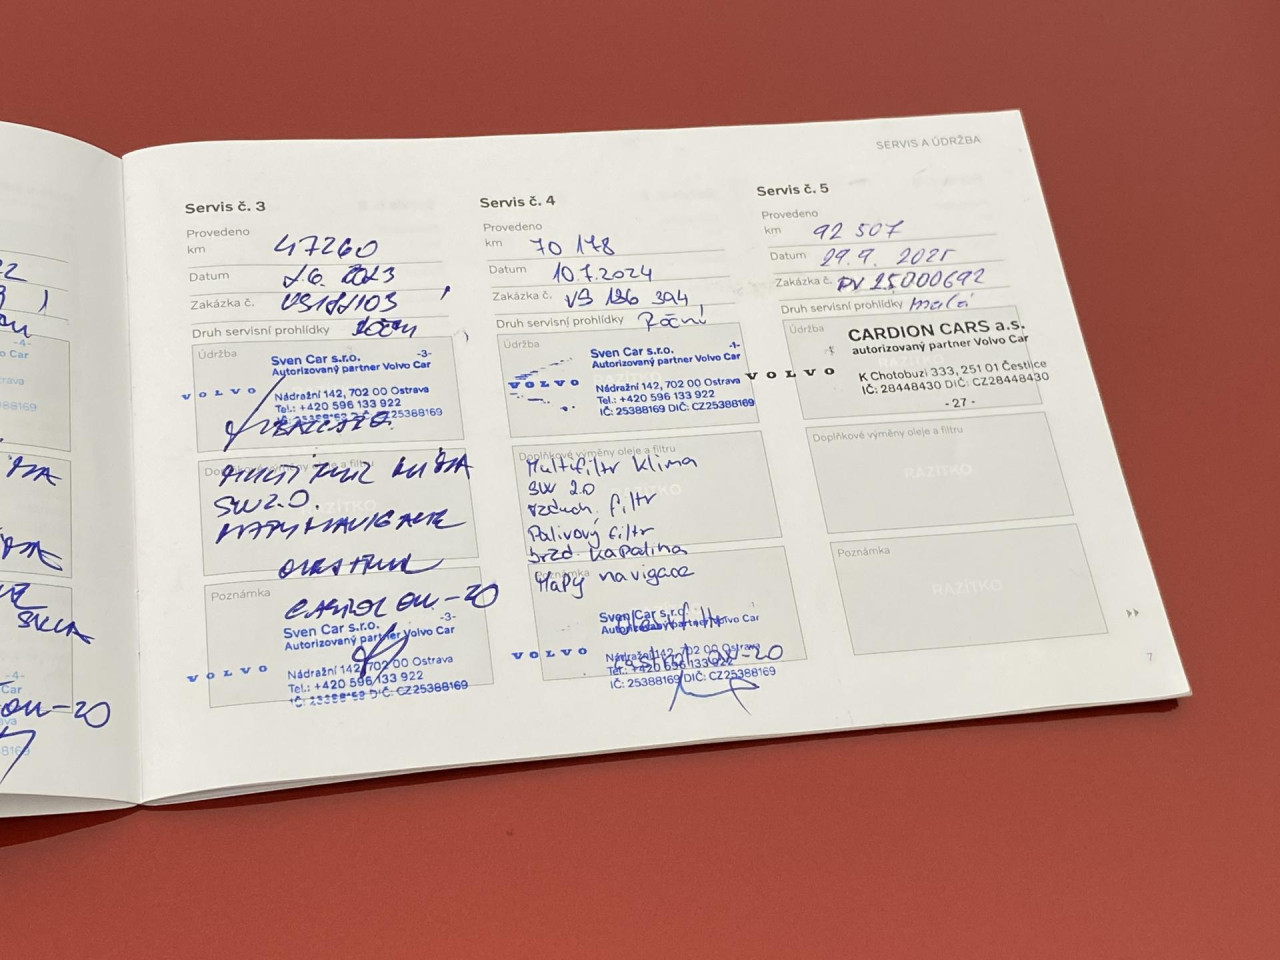 SERVIS A ÚDRŽBA
Servis č. 3
Provedeno
km 47260
Datum 2.6. 2023
Zakázka č.
Druh servisní prohlídky
Údržba
Sven Car s.r.o. -3-
Autorizovaný partner Volvo Car
VOLVO
Nádražní 142, 702 00 Ostrava
Tel.: +420 596 133 922
IČ: 25388169 DIČ: CZ25388169
Doplňkové výměny oleje a filtru
RAZÍTKO
MULTIFILTR
SW 2.0.
MAPY NAVIGACE
Poznámka
CASTROL 0W-20
Sven Car s.r.o. -3-
Autorizovaný partner Volvo Car
VOLVO
Nádražní 142, 702 00 Ostrava
Tel.: +420 596 133 922
IČ: 25388169 DIČ: CZ25388169
Servis č. 4
Provedeno
km 70 178
Datum 10.7.2024
Zakázka č. VS 186 394
Druh servisní prohlídky Roční
Údržba
Sven Car s.r.o. -1-
Autorizovaný partner Volvo Car
VOLVO
Nádražní 142, 702 00 Ostrava
Tel.: +420 596 133 922
IČ: 25388169 DIČ: CZ25388169
Doplňkové výměny oleje a filtru
Multifiltr klima
SW 2.0
vzduch. filtr
Palivový filtr
brzd. kapalina
Poznámka
Mapy navigace
Sven Car s.r.o.
Autorizovaný partner Volvo Car
VOLVO
Nádražní 142, 702 00 Ostrava
Castrol 0W-20
Tel.: +420 596 133 922
IČ: 25388169 DIČ: CZ25388169
Servis č. 5
Provedeno
km 92 507
Datum 29.9. 2025
Zakázka č. PV 25000692
Druh servisní prohlídky malá
Údržba
CARDION CARS a.s.
autorizovaný partner Volvo Car
VOLVO
K Chotobuzi 333, 251 01 Čestlice
IČ: 28448430 DIČ: CZ28448430
- 27 -
Doplňkové výměny oleje a filtru
RAZÍTKO
Poznámka
RAZÍTKO
7